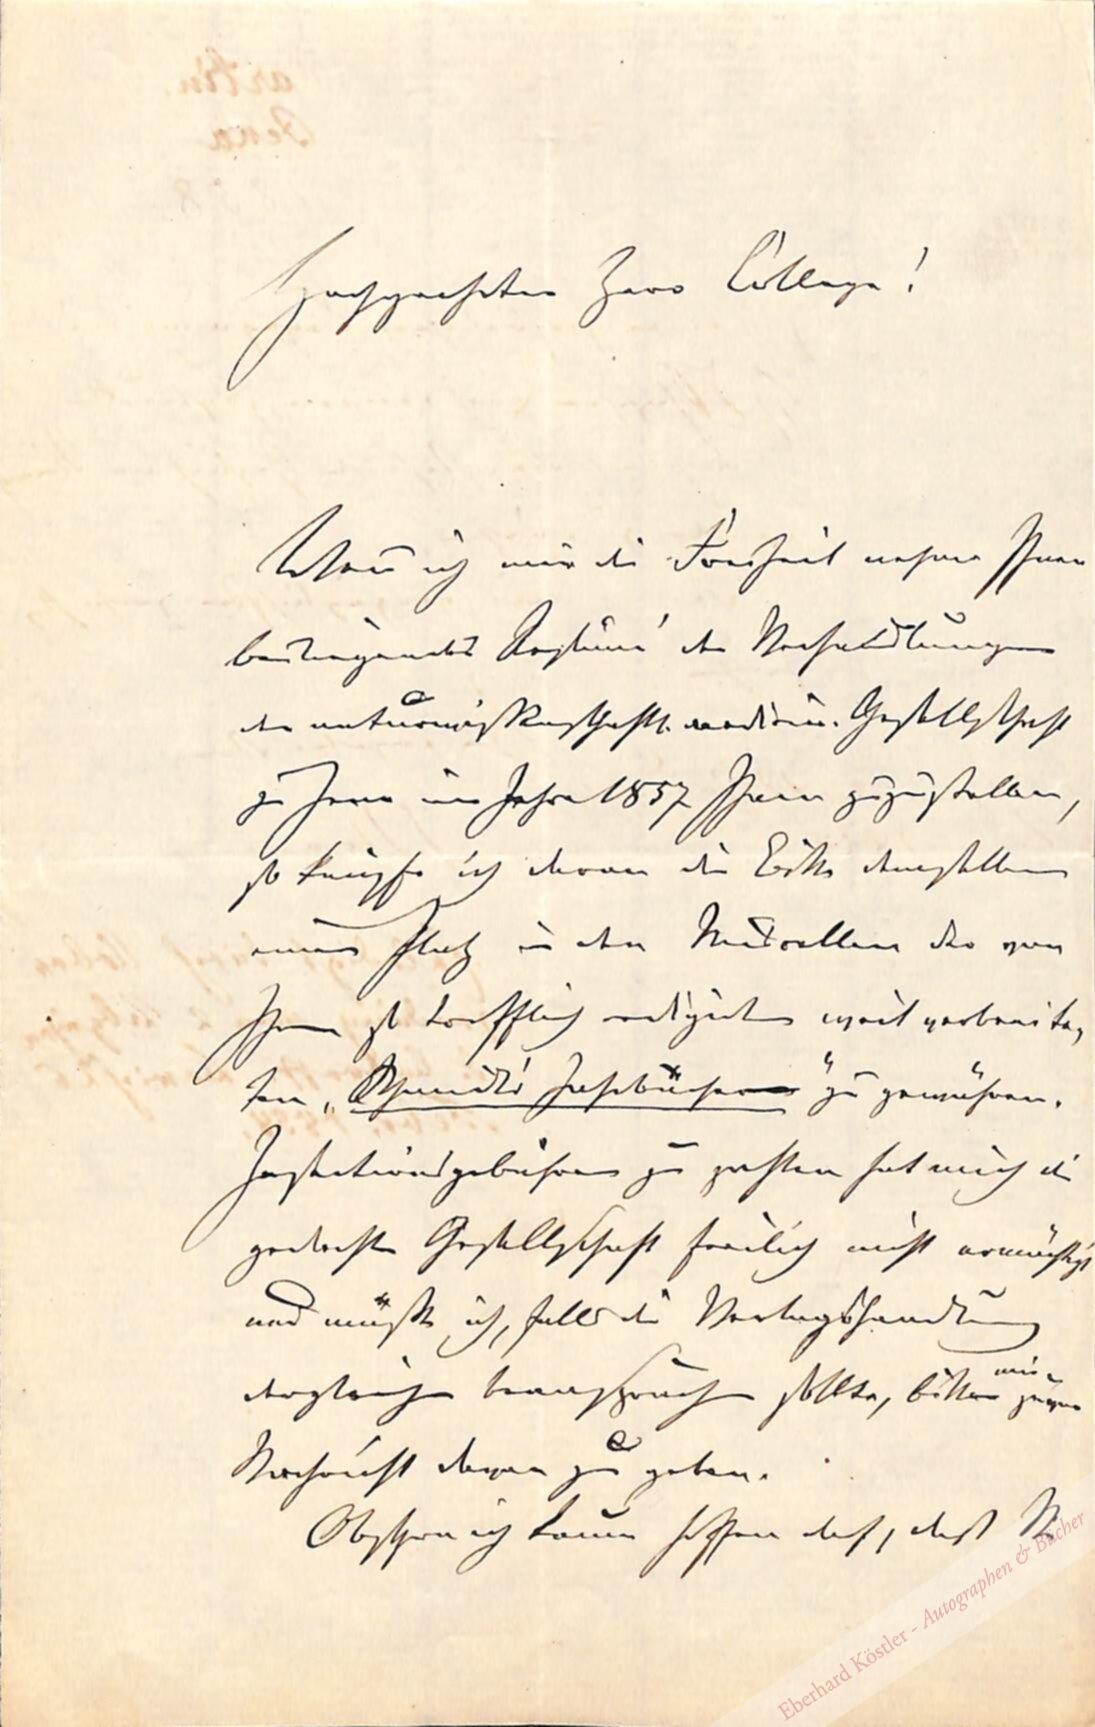 Hochgeehrter Herr College!
Wenn ich mir die Freiheit nehme Ihnen
beiliegendes Resumé der Verhandlungen
der naturwissenschaftl. medicin. Gesellschaft
zu Jena im Jahre 1857 Ihnen zuzustellen,
so knüpfe ich daran die Bitte demselben
einen Platz in den Miscellen der von
Ihnen so trefflich redigirten weit verbreite-
ten „Schmidt's Jahrbücher" zu gewähren.
Insertionsgebühren zu zahlen hat mich die
gedachte Gesellschaft freilich nicht ermächtigt
und müßte ich, falls die Verlagshandlung
dergleichen beanspruchen sollte, bitten mir
Nachricht davon zu geben.
Obschon ich kaum hoffen darf, daß
Eberhard Köstler - Autographen & Bücher